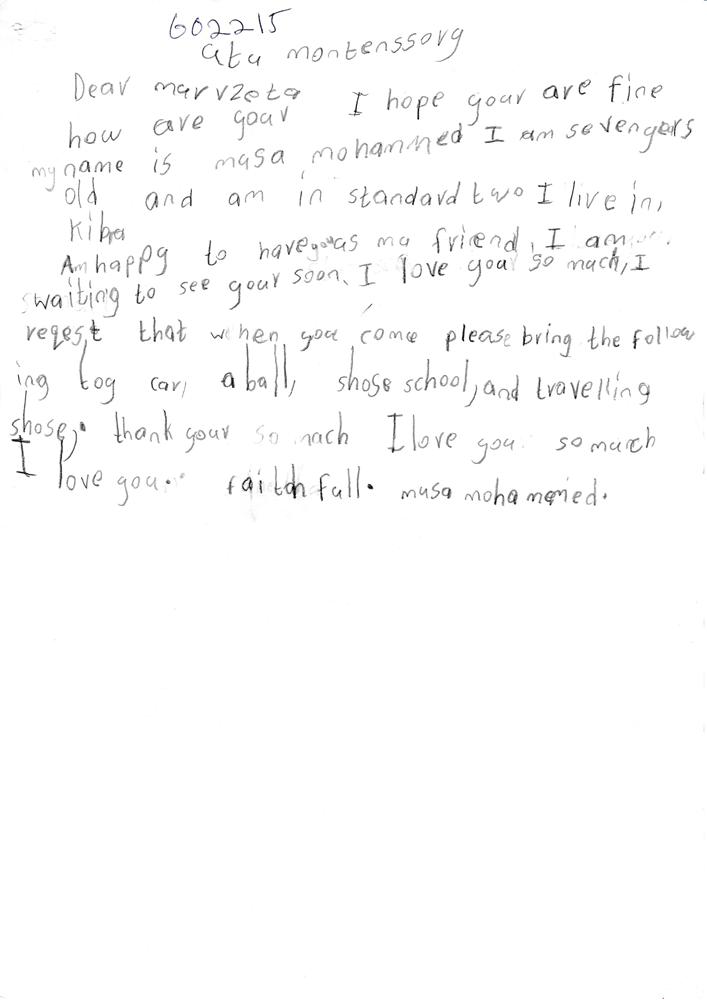 602215
ata montenssory
Dear marvzeta I hope your are fine
how are your
my name is musa mohammed I am seven yers
old and am in standard two I live in,
Kiba
Am happy to have you as my friend, I am
waiting to see your soon, I love you so much, I
reqest that when you come please bring the follow
ing toy car, a ball, shose school, and travelling
shose,. thank your so mach I love you so much
I love you. faithfull. musa mohammed.